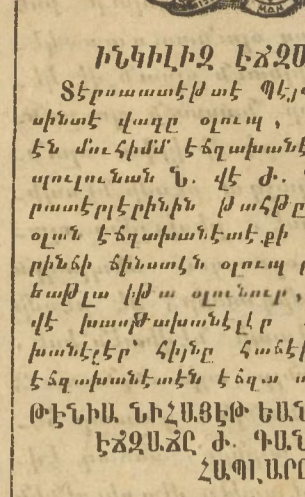 ԻՆԿԻԼԻԶ ԷՃԶԱ
Տէրսաատէթտէ Պէյ
սինտէ վագը օլուպ ,
էն մուհիմմ էճզախանէ
պուլունան Ն. վէ Ժ.
րատէրլէրինին թահթը
օլան էճզախանէտէ.քի
րինճի ճինստէն օլուպ
եաթլա իթա օլունուր ,
վէ խասթախանէլէր
խանէլէր՝ հիյնը հաճէ
էճզախանէտէն էճզա
ԹԷՆԻԱ ՆԻՀԱՅԷԹ ԵԱՆ
ԷՃԶԱՃԸ Ժ. ԳԱՆ
ՀԱՊԼԱՐԸ